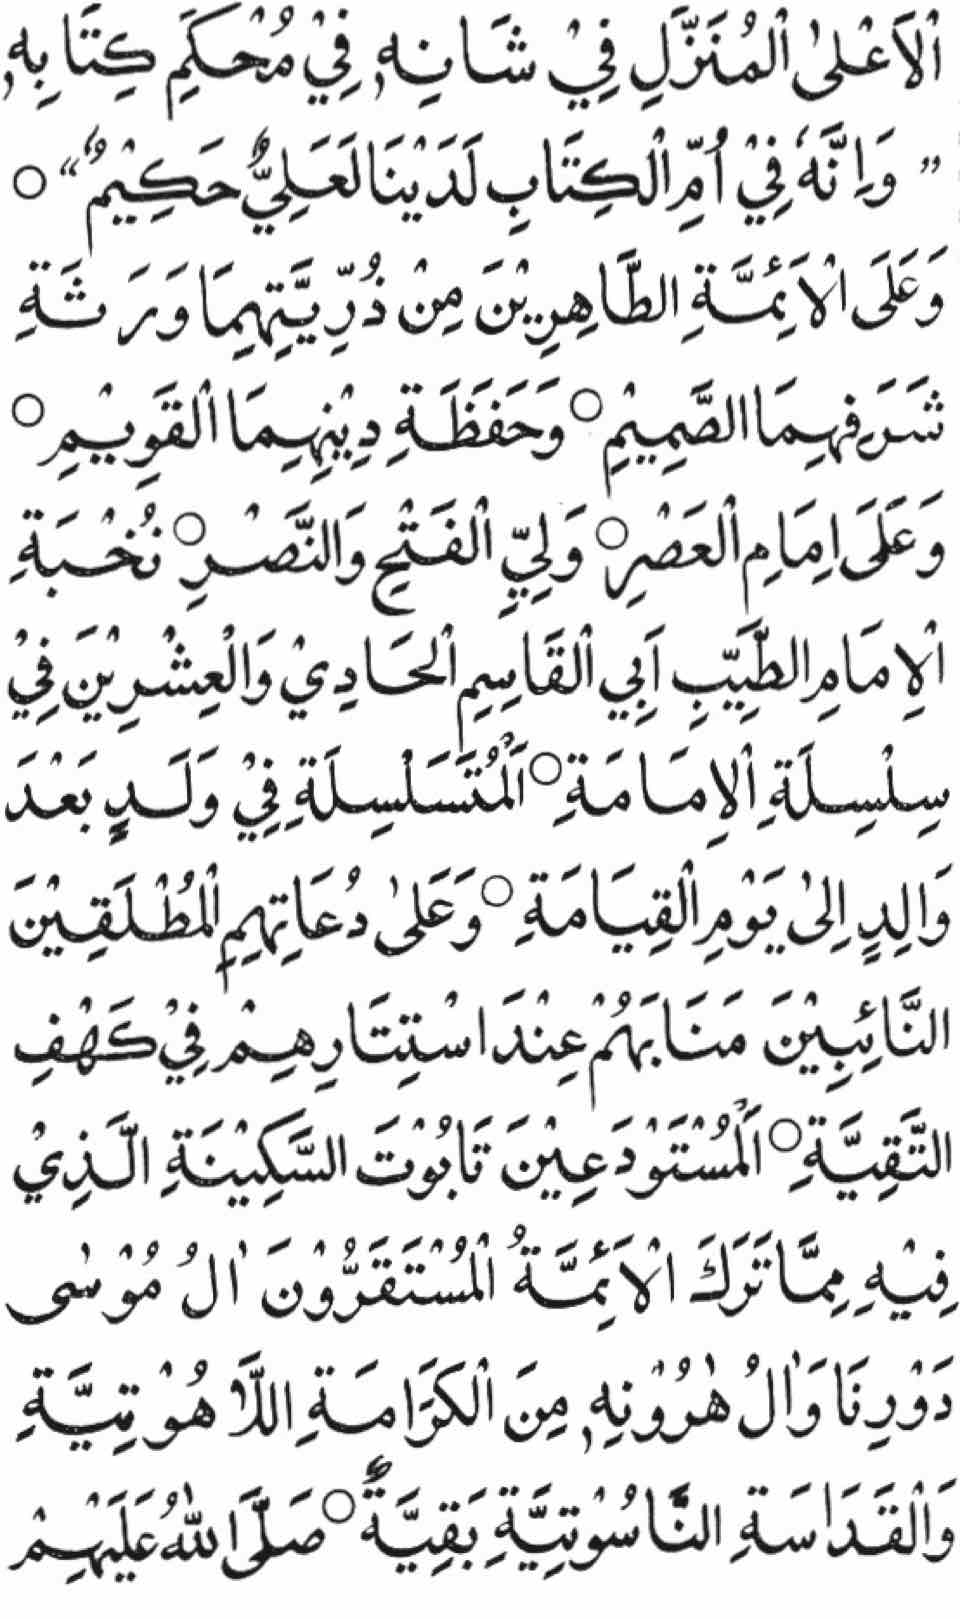 اْلاَعْلىٰ اْلمُنَزَّلِ فِيْ شَانِهٖ فِيْ مُحْكَمِ كِتَابِهٖ
” وَاِنَّهٗ فِيْ اُمِّ الْكِتَابِ لَدَيْنَا لَعَلِيٌّ حَكِيْمٌ “ ○
وَعَلَى الْاَئِمَّةِ الطَّاهِرِيْنَ مِنْ ذُرِّيَّتِهِمَا وَرَثَةِ
شَرَفِهِمَا الصَّمِيْمِ ○ وَحَفَظَةِ دِيْنِهِمَا الْقَوِيْمِ ○
وَعَلَى اِمَامِ الْعَصْرِ ○ وَلِيِّ الْفَتْحِ وَالنَّصْرِ ○ نُخْبَةِ
الْاِمَامِ الطَّيِّبِ اَبِي الْقَاسِمِ الْحَادِيْ وَالْعِشْرِيْنَ فِيْ
سِلْسِلَةِ الْاِمَامَةِ ○ اَلْمُتَسَلْسِلَةِ فِيْ وَلَدٍ بَعْدَ
وَالِدٍ اِلىٰ يَوْمِ الْقِيَامَةِ ○ وَعَلىٰ دُعَاتِهِمِ الْمُطْلَقِيْنَ
النَّائِبِيْنَ مَنَابَهُمْ عِنْدَ اسْتِتَارِهِمْ فِيْ كَهْفِ
التَّقِيَّةِ ○ اَلْمُسْتَوْدَعِيْنَ تَابُوْتَ السَّكِيْنَةِ الَّذِيْ
فِيْهِ مِمَّا تَرَكَ الْاَئِمَّةُ الْمُسْتَقَرُّوْنَ اٰلُ مُوْسٰى
دَوْرِنَا وَاٰلُ هٰرُوْنِهٖ مِنَ الْكَرَامَةِ اللَّاهُوْتِيَّةِ
وَالْقَدَاسَةِ النَّاسُوْتِيَّةِ بَقِيَّةٌ ○ صَلَّى اللهُ عَلَيْهِمْ